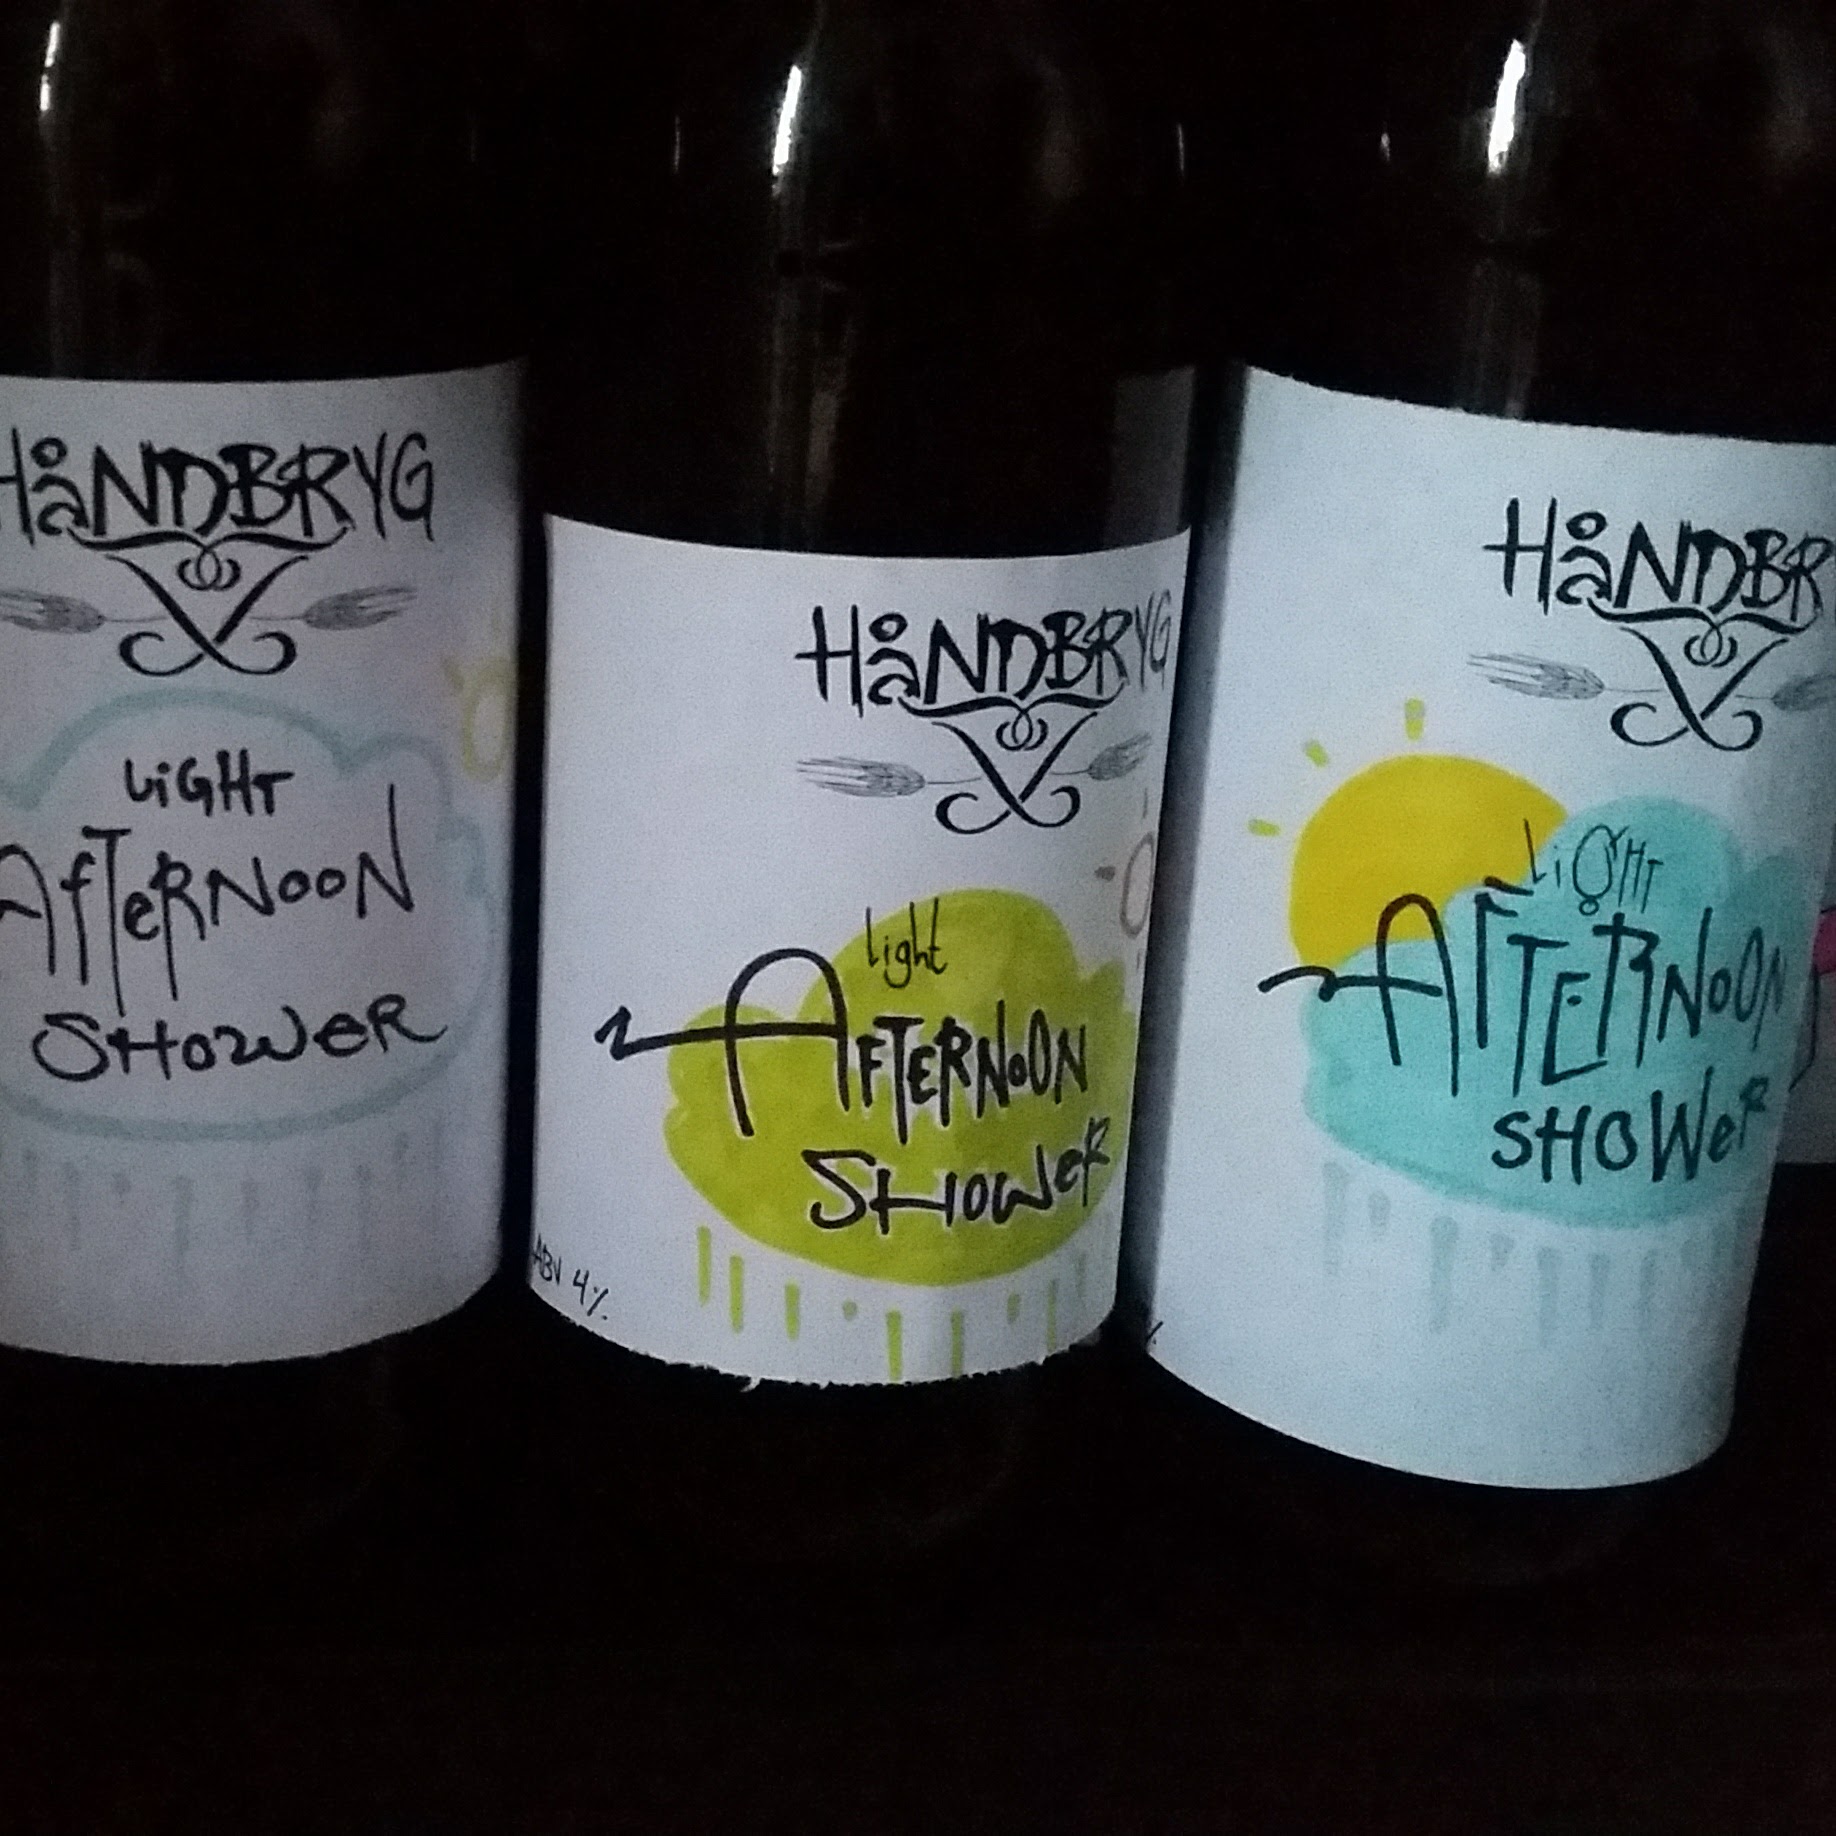 HåNDBRYG
LiGHT
AfTeRNOON
SHOWeR
HåNDBRYG
light
AFTERNOON
SHOWeR
ABV 4%
HåNDBR
LiGHT
AFTERNOON
SHOWeR
%